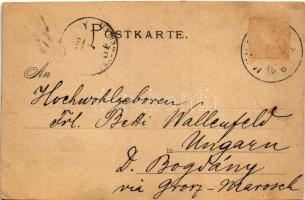 POSTKARTE.
An
Hochwohlgeboren
Frl. Betti Wallenfeld
in Ungarn
D. Bogdány
via Grosz-Marosch